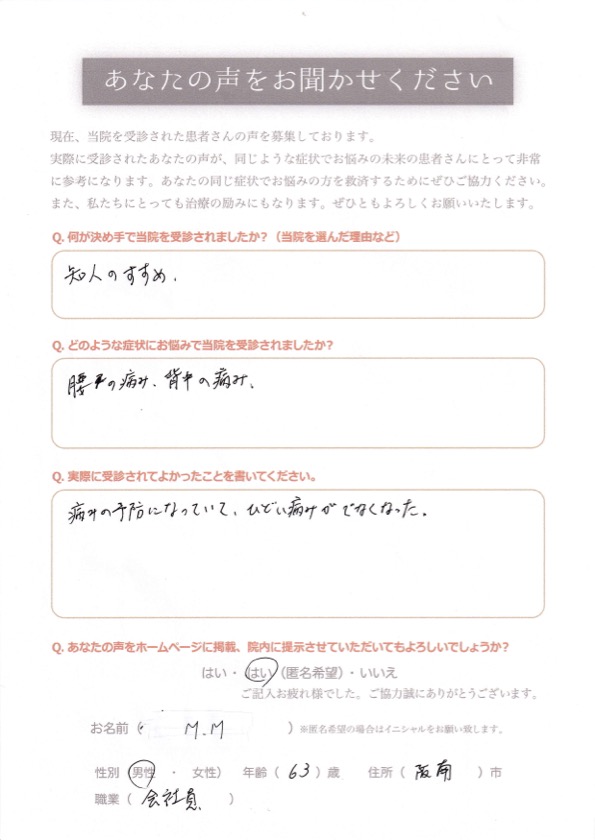 あなたの声をお聞かせください
現在、当院を受診された患者さんの声を募集しております。
実際に受診されたあなたの声が、同じような症状でお悩みの未来の患者さんにとって非常
に参考になります。あなたの同じ症状でお悩みの方を救済するためにぜひご協力ください。
また、私たちにとっても治療の励みにもなります。ぜひともよろしくお願いいたします。
Q. 何が決め手で当院を受診されましたか？（当院を選んだ理由など）
知人のすすめ.
Q. どのような症状にお悩みで当院を受診されましたか？
腰の痛み、背中の痛み、
Q. 実際に受診されてよかったことを書いてください。
痛みの予防になっていて、ひどい痛みがでなくなった。
Q. あなたの声をホームページに掲載、院内に提示させていただいてもよろしいでしょうか？
はい・はい（匿名希望）・いいえ
ご記入お疲れ様でした。ご協力誠にありがとうございます。
お名前（ M.M ）※匿名希望の場合はイニシャルをお願い致します。
性別（男性 ・ 女性） 年齢（ 63 ）歳 住所（ 阪南 ）市
職業（ 会社員 ）